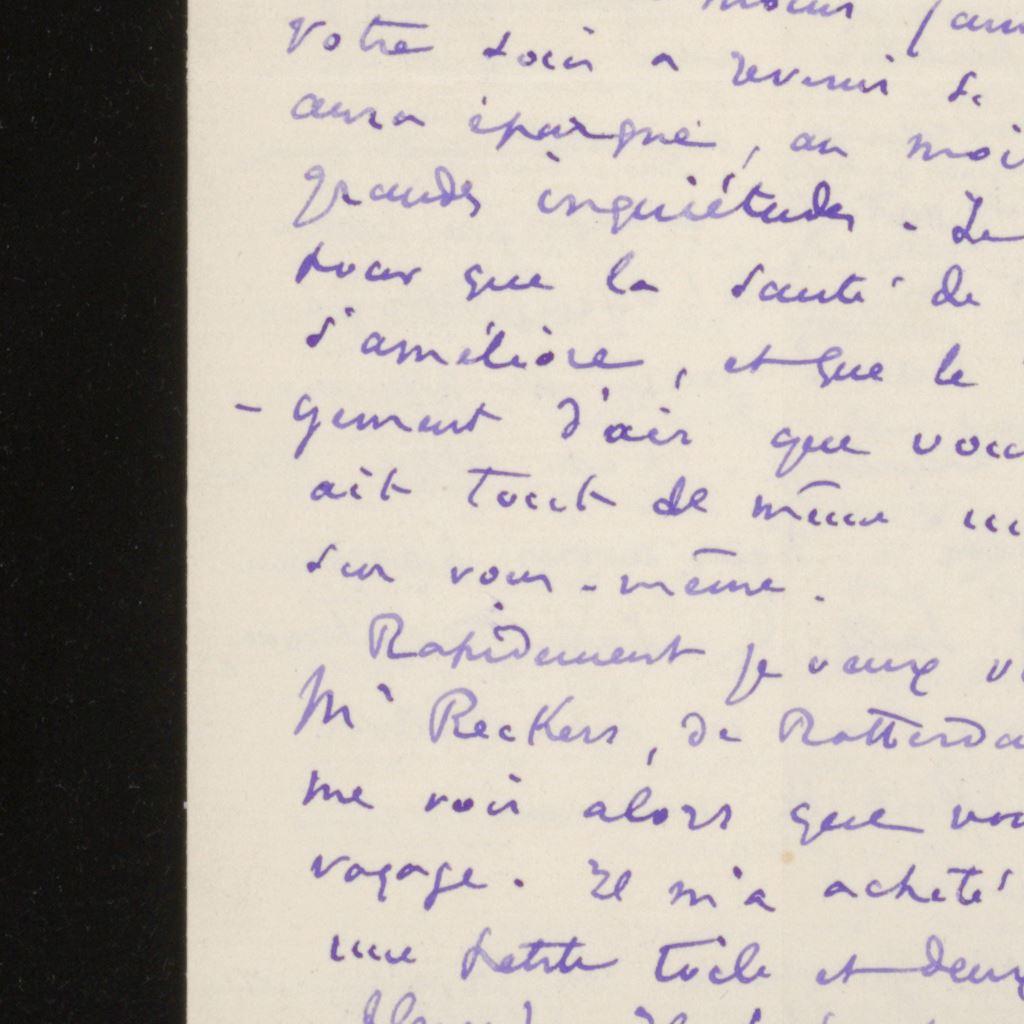 moins
votre soin a revenir de
aura épargné, au moi
grandes inquiétudes. Je
pour que la santé de
s'améliore, et que le
- gement d'air que vou
ait tout de même
sur vous-même.
Rapidement je veux v
Mr Reckers, de Rotterda
me voir alors que vou
voyage. Il m'a acheté
une petite toile et deux